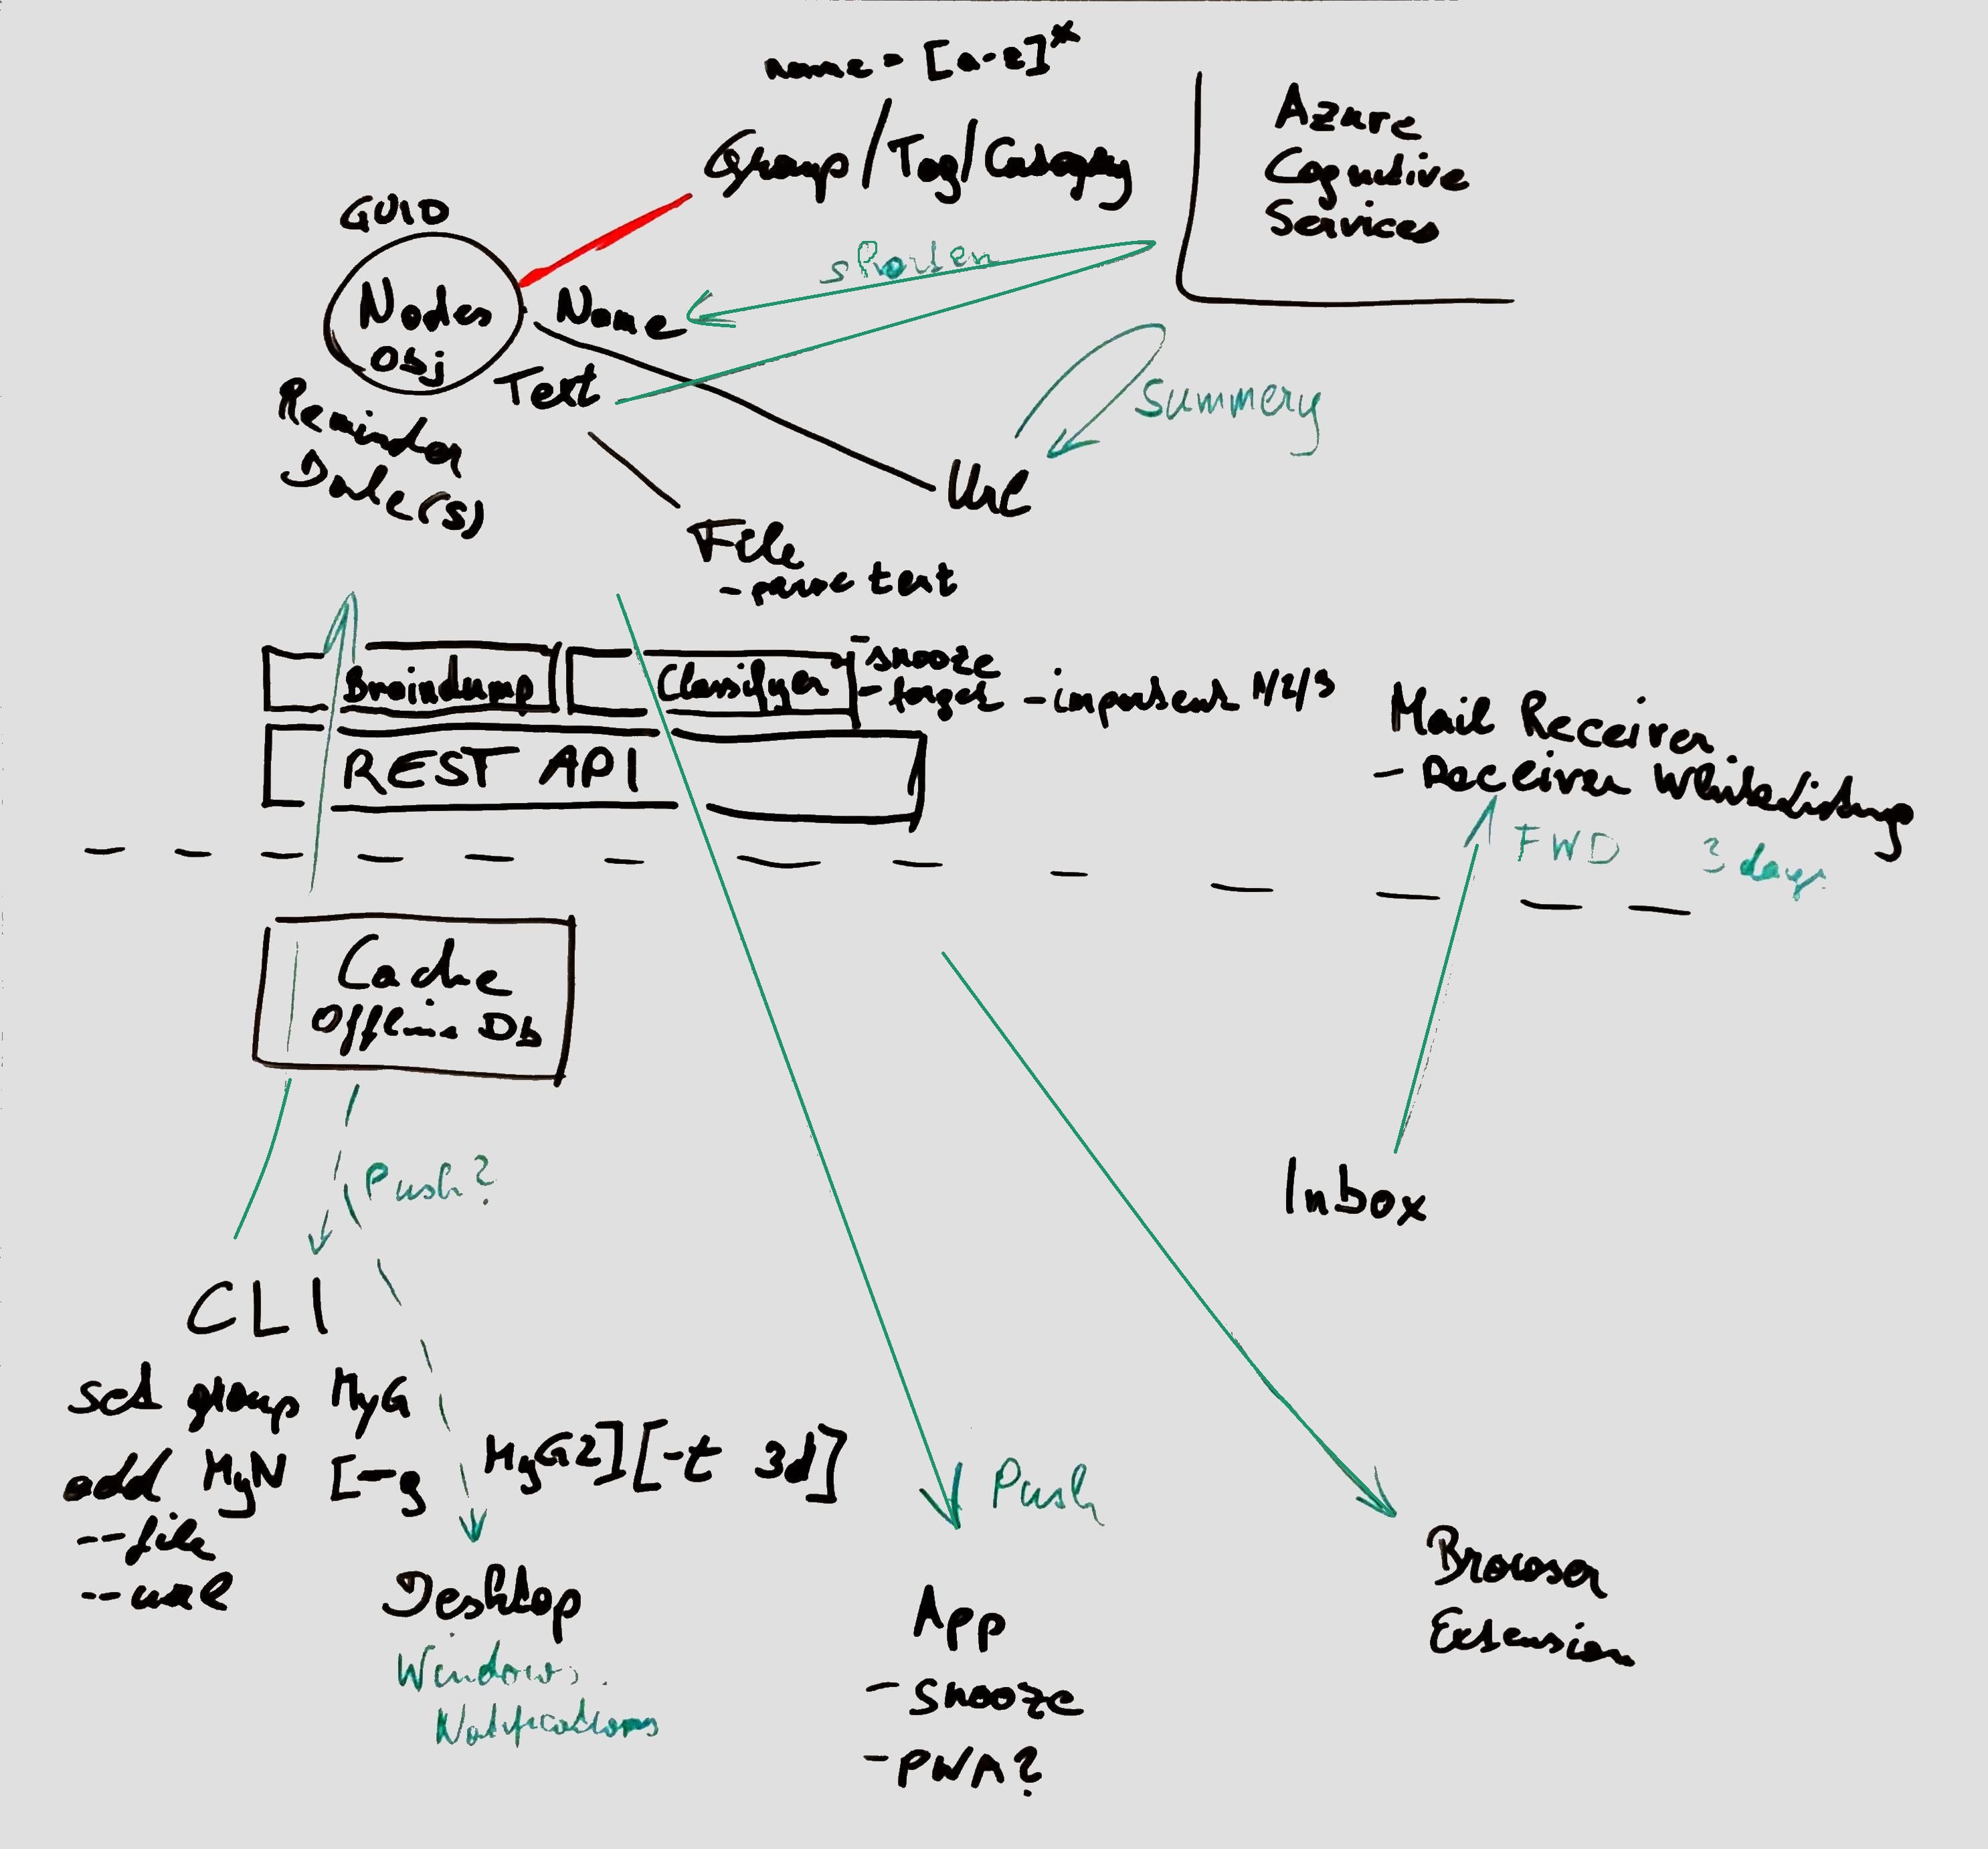 name = [a-z]*
Group/Tag/Category
Azure
Cognitive
Services
GUID
Nodes
Obj
Name
Text
Reminder
Date(s)
summery
Url
File
- pure text
Braindump
Classifyer
- snooze
- forget - important 1/2/3
REST API
Mail Receiver
- Receiver Whitelisting
FWD 3 days
Cache
Offline Db
Push?
Inbox
CLI
set group MyG
add MyN [-g MyG2][-t 3d]
--file
--url
Push
Desktop
Windows
Notifications
App
- Snooze
- PWA?
Browser
Extension